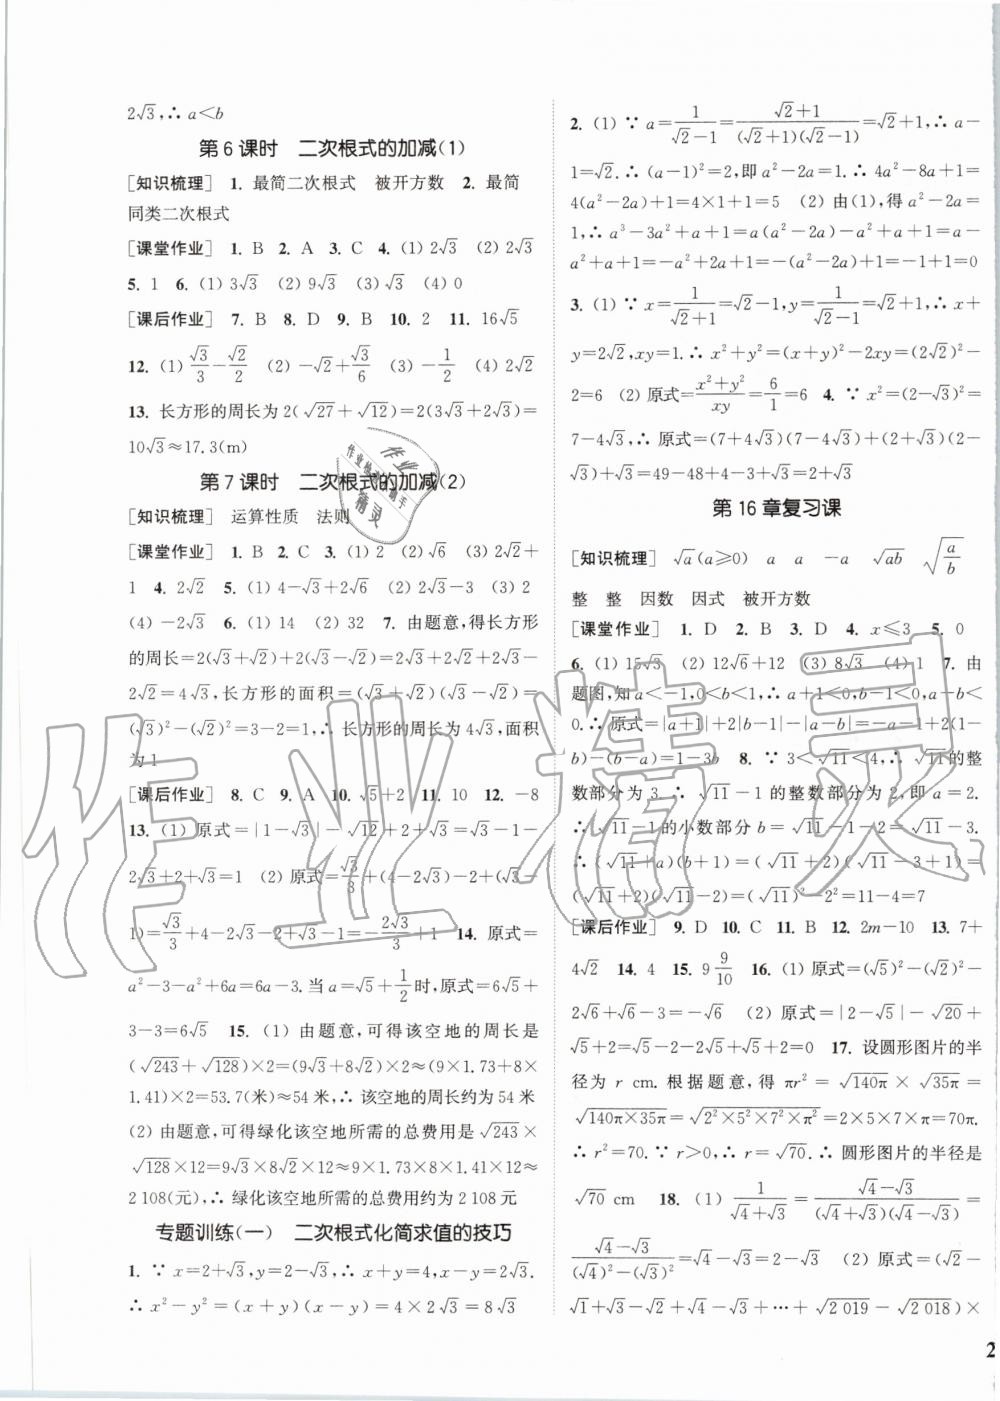 2√3,∴ a<b
第6课时 二次根式的加减(1)
[知识梳理] 1. 最简二次根式 被开方数 2. 最简
同类二次根式
[课堂作业] 1. B 2. A 3. C 4. (1) 2√3 (2) 2√3
5. 1 6. (1) 3√3 (2) 9√3 (3) √3 (4) 0
[课后作业] 7. B 8. D 9. B 10. 2 11. 16√5
12. (1) √3/3-√2/2 (2) -√2+√3/6 (3) -1/2 (4) 2√2
13. 长方形的周长为 2(√27+√12)=2(3√3+2√3)=
10√3≈17.3(m)
第7课时 二次根式的加减(2)
[知识梳理] 运算性质 法则
[课堂作业] 1. B 2. C 3. (1) 2 (2) √6 (3) 2√2+
1 4. 2√2 5. (1) 4-√3+2√6 (2) 2√3-3 (3) 2
(4) -2√3 6. (1) 14 (2) 32 7. 由题意,得长方形
的周长=2(√3+√2)+2(√3-√2)=2√3+2√2+2√3-
2√2=4√3,长方形的面积=(√3+√2)(√3-√2)=
(√3)²-(√2)²=3-2=1,∴ 长方形的周长为 4√3,面积
为 1
[课后作业] 8. C 9. A 10. √5+2 11. 10 12. -8
13. (1) 原式=|1-√3|-√12+2+√3=√3-1-
2√3+2+√3=1 (2) 原式=√3/3+(4-2√3)-2+(√3-
1)=√3/3+4-2√3-2+√3+1=-2√3/3+1 14. 原式=
a²-3-a²+6a=6a-3. 当 a=√5+1/2时,原式=6√5
+3-3=6√5 15. (1) 由题意,可得该空地的周长是
(√243+√128)×2=(9√3+8√2)×2≈(9×1.73+8×
1.41)×2=53.7(米)≈54 米,∴ 该空地的周长约为 54 米
(2) 由题意,可得绿化该空地所需的总费用是√243×
√128×12=9√3×8√2×12≈9×1.73×8×1.41×12≈
2 108(元),∴ 绿化该空地所需的总费用约为 2 108 元
专题训练(一) 二次根式化简求值的技巧
1. ∵ x=2+√3,y=2-√3,∴ x+y=4,x-y=2√3.
∴ x²-y²=(x+y)(x-y)=4×2√3=8√3
2. (1) ∵ a=1/(√2-1)=(√2+1)/((√2+1)(√2-1))=√2+1,∴ a-
1=√2.∴ (a-1)²=2,即 a²-2a=1.∴ 4a²-8a+1=
4(a²-2a)+1=4×1+1=5 (2) 由(1),得 a²-2a=
1,∴ a³-3a²+a+1=a(a²-2a)-a²+a+1=a-
a²+a+1=-a²+2a+1=-(a²-2a)+1=-1+1=0
3. (1) ∵ x=1/(√2+1)=√2-1,y=1/(√2-1)=√2+1,∴ x+
y=2√2,xy=1.∴ x²+y²=(x+y)²-2xy=(2√2)²-
2=6 (2) 原式=(x²+y²)/xy=6/1=6 4. ∵ x²=(2-√3)²=
7-4√3,∴ 原式=(7+4√3)(7-4√3)+(2+√3)(2-
√3)+√3=49-48+4-3+√3=2+√3
第16章复习课
[知识梳理] √a(a≥0) a a -a √ab √(a/b)
整 整 因数 因式 被开方数
[课堂作业] 1. D 2. B 3. D 4. x≤3 5. 0
6. (1) 15√3 (2) 12√6+12 (3) 8√3 (4) 1 7. 由
题图,知 a<-1,0<b<1,∴ a+1<0,b-1<0,a-b<
0.∴ 原式=|a+1|+2|b-1|-|a-b|=-a-1+2(1-
b)-(b-a)=1-3b 8. ∵ 3<√11<4,∴ √11的整
数部分为 3.∴ √11-1 的整数部分为 2,即 a=2.
∴ √11-1 的小数部分 b=√11-1-2=√11-3.
∴ (√11+a)(b+1)=(√11+2)(√11-3+1)=
(√11+2)(√11-2)=(√11)²-2²=11-4=7
[课后作业] 9. D 10. C 11. B 12. 2m-10 13. 7+
4√2 14. 4 15. 9 9/10 16. (1) 原式=(√5)²-(√2)²-
2√6+√6-3=-√6 (2) 原式=|2-√5|-√20+
√5+2=√5-2-2√5+√5+2=0 17. 设圆形图片的半
径为 r cm. 根据题意,得 πr²=√140π×√35π=
√140π×35π=√2²×5²×7²×π²=2×5×7×π=70π.
∴ r²=70.∵ r>0,∴ r=√70.∴ 圆形图片的半径是
√70 cm 18. (1) 1/(√4+√3)=(√4-√3)/((√4+√3)(√4-√3))=
(√4-√3)/((√4)²-(√3)²)=√4-√3=2-√3 (2) 原式=(√2-
√1+√3-√2+√4-√3+…+√2 019-√2 018)×
2
作业精灵
作业检查小助手
精灵
作业精灵